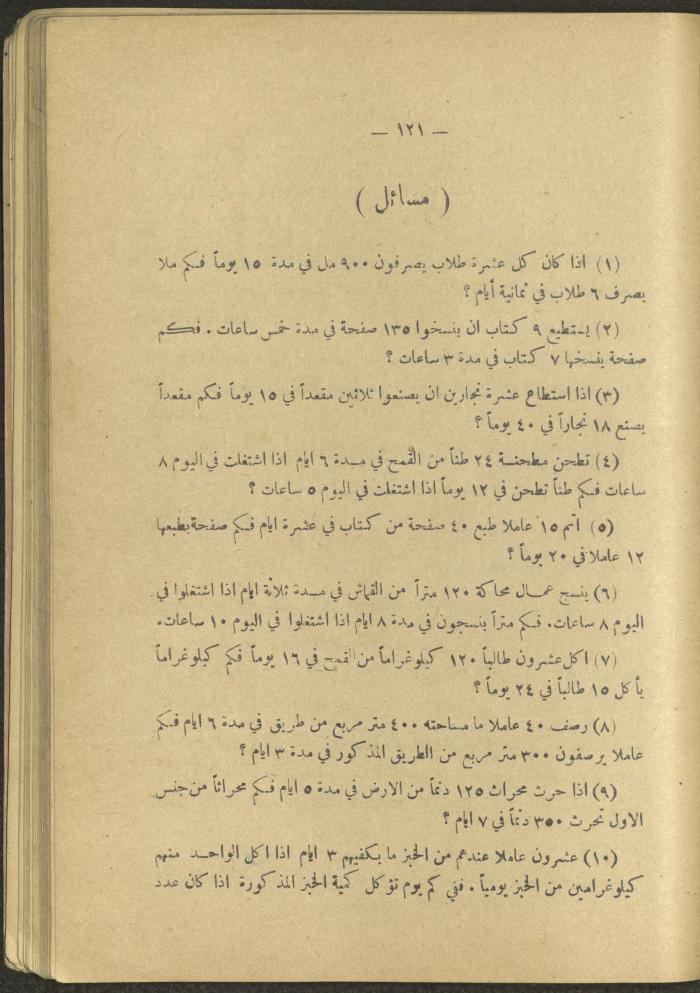 — ١٢١ —
( مسائل )
(١) اذا كان كل عشرة طلاب يصرفون ٩٠٠ مل في مدة ١٥ يوماً فكم ملا
يصرف ٦ طلاب في ثمانية أيام ؟
(٢) يستطيع ٩ كتاب ان ينسخوا ١٣٥ صفحة في مدة خمس ساعات . فكم
صفحة ينسخها ٧ كتاب في مدة ٣ ساعات ؟
(٣) اذا استطاع عشرة نجارين ان يصنعوا ثلاثين مقعداً في ١٥ يوماً فكم مقعداً
يصنع ١٨ نجاراً في ٤٠ يوماً ؟
(٤) تطحن مطحنة ٢٤ طناً من القمح في مدة ٦ ايام اذا اشتغلت في اليوم ٨
ساعات فكم طناً تطحن في ١٢ يوماً اذا اشتغلت في اليوم ٥ ساعات ؟
(٥) اتم ١٥ عاملا طبع ٤٠ صفحة من كتاب في عشرة ايام فكم صفحة يطبعها
١٢ عاملا في ٢٠ يوماً ؟
(٦) ينسج عمال محاكة ١٢٠ متراً من القماش في مدة ثلاثة ايام اذا اشتغلوا في
اليوم ٨ ساعات. فكم متراً ينسجون في مدة ٨ ايام اذا اشتغلوا في اليوم ١٠ ساعات.
(٧) اكل عشرون طالباً ١٢٠ كيلوغراماً من القمح في ١٦ يوماً فكم كيلوغراماً
يأكل ١٥ طالباً في ٢٤ يوماً ؟
(٨) رصف ٤٠ عاملا ما مساحته ٤٠٠ متر مربع من طريق في مدة ٦ ايام فكم
عاملا يرصفون ٣٠٠ متر مربع من الطريق المذكور في مدة ٣ ايام ؟
(٩) اذا حرث محراث ١٢٥ دنماً من الارض في مدة ٥ ايام فكم محراثاً من جنس
الاول تحرث ٣٥٠ دنماً في ٧ ايام ؟
(١٠) عشرون عاملا عندهم من الخبز ما يكفيهم ٣ ايام اذا اكل الواحد منهم
كيلوغرامين من الخبز يومياً . ففي كم يوم تؤكل كمية الخبز المذكورة اذا كان عدد